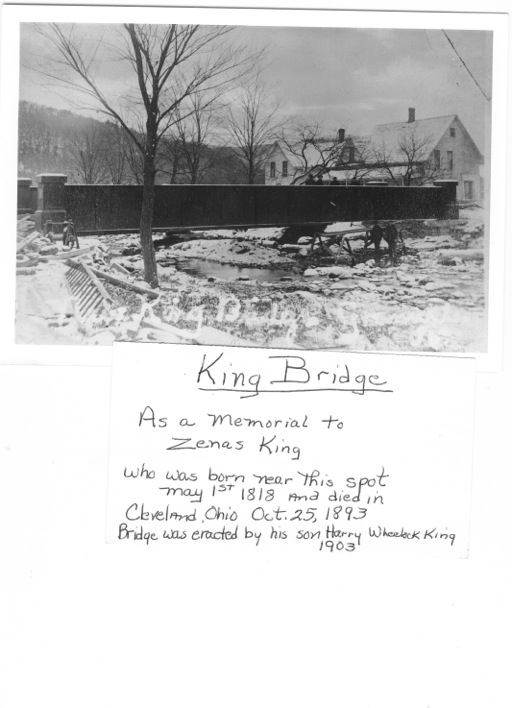 King Bridge
King Bridge
As a Memorial to
Zenas King
who was born near this spot
May 1st 1818 and died in
Cleveland, Ohio Oct. 25, 1893
Bridge was eracted by his son Harry Wheelock King
1903